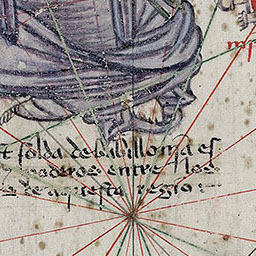 solda de babillonia es
poderos entre los
de aquesta regio: